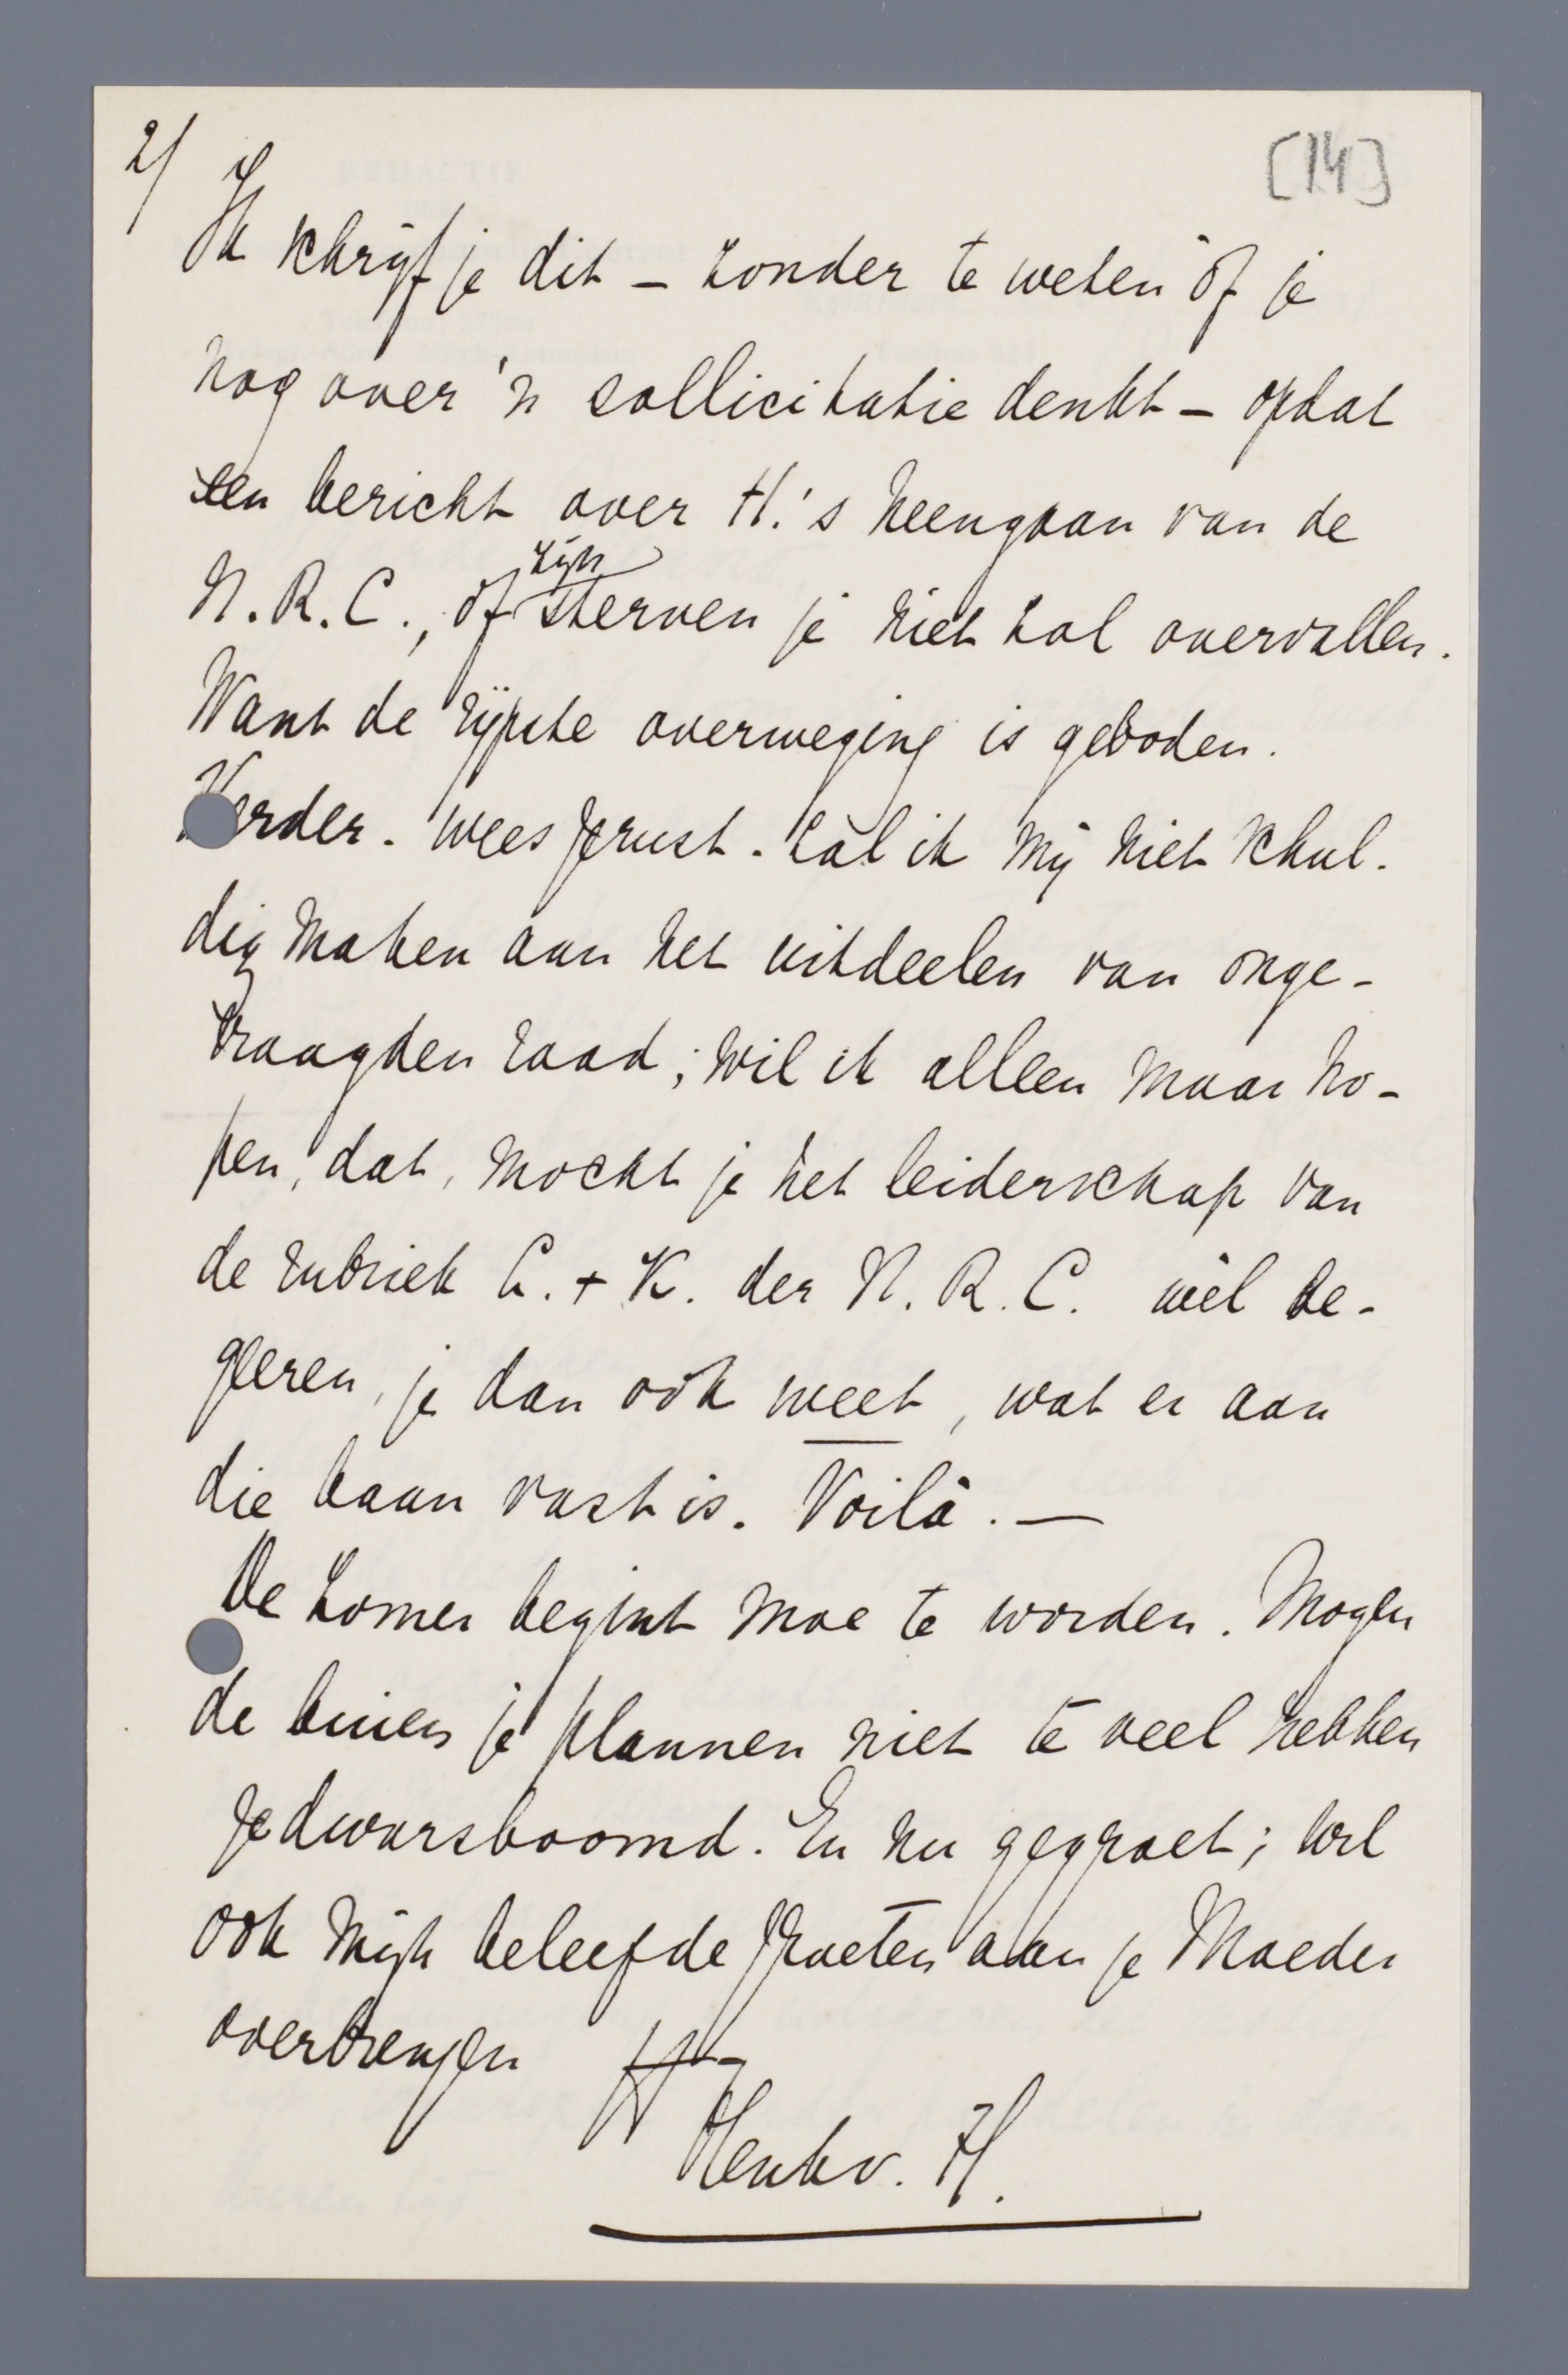 2/
[14]
Ik schrijf je dit – zonder te weten òf je
nog over 'n sollicitatie denkt – opdat
een bericht over H.'s heengaan van de
zijn
N.R.C., of sterven je niet zal overvallen.
Want de rijpste overweging is geboden.
Verder - wees gerust - zàl ik mij niet schul-
dig maken aan het uitdeelen van onge-
vraagden raad; wil ik alleen maar ho-
pen, dat, mocht je het leiderschap van
de rubriek L. + K. der N.R.C. wèl be-
geeren, je dan ook weet, wat er aan
die baan vast is. Voilà. —
De zomer begint moe te worden. Mogen
de buien je plannen niet te veel hebben
gedwarsboomd. En nu gegroet; wil
ook mijn beleefde groeten aan je Moeder
overbrengen
Henk v. H.